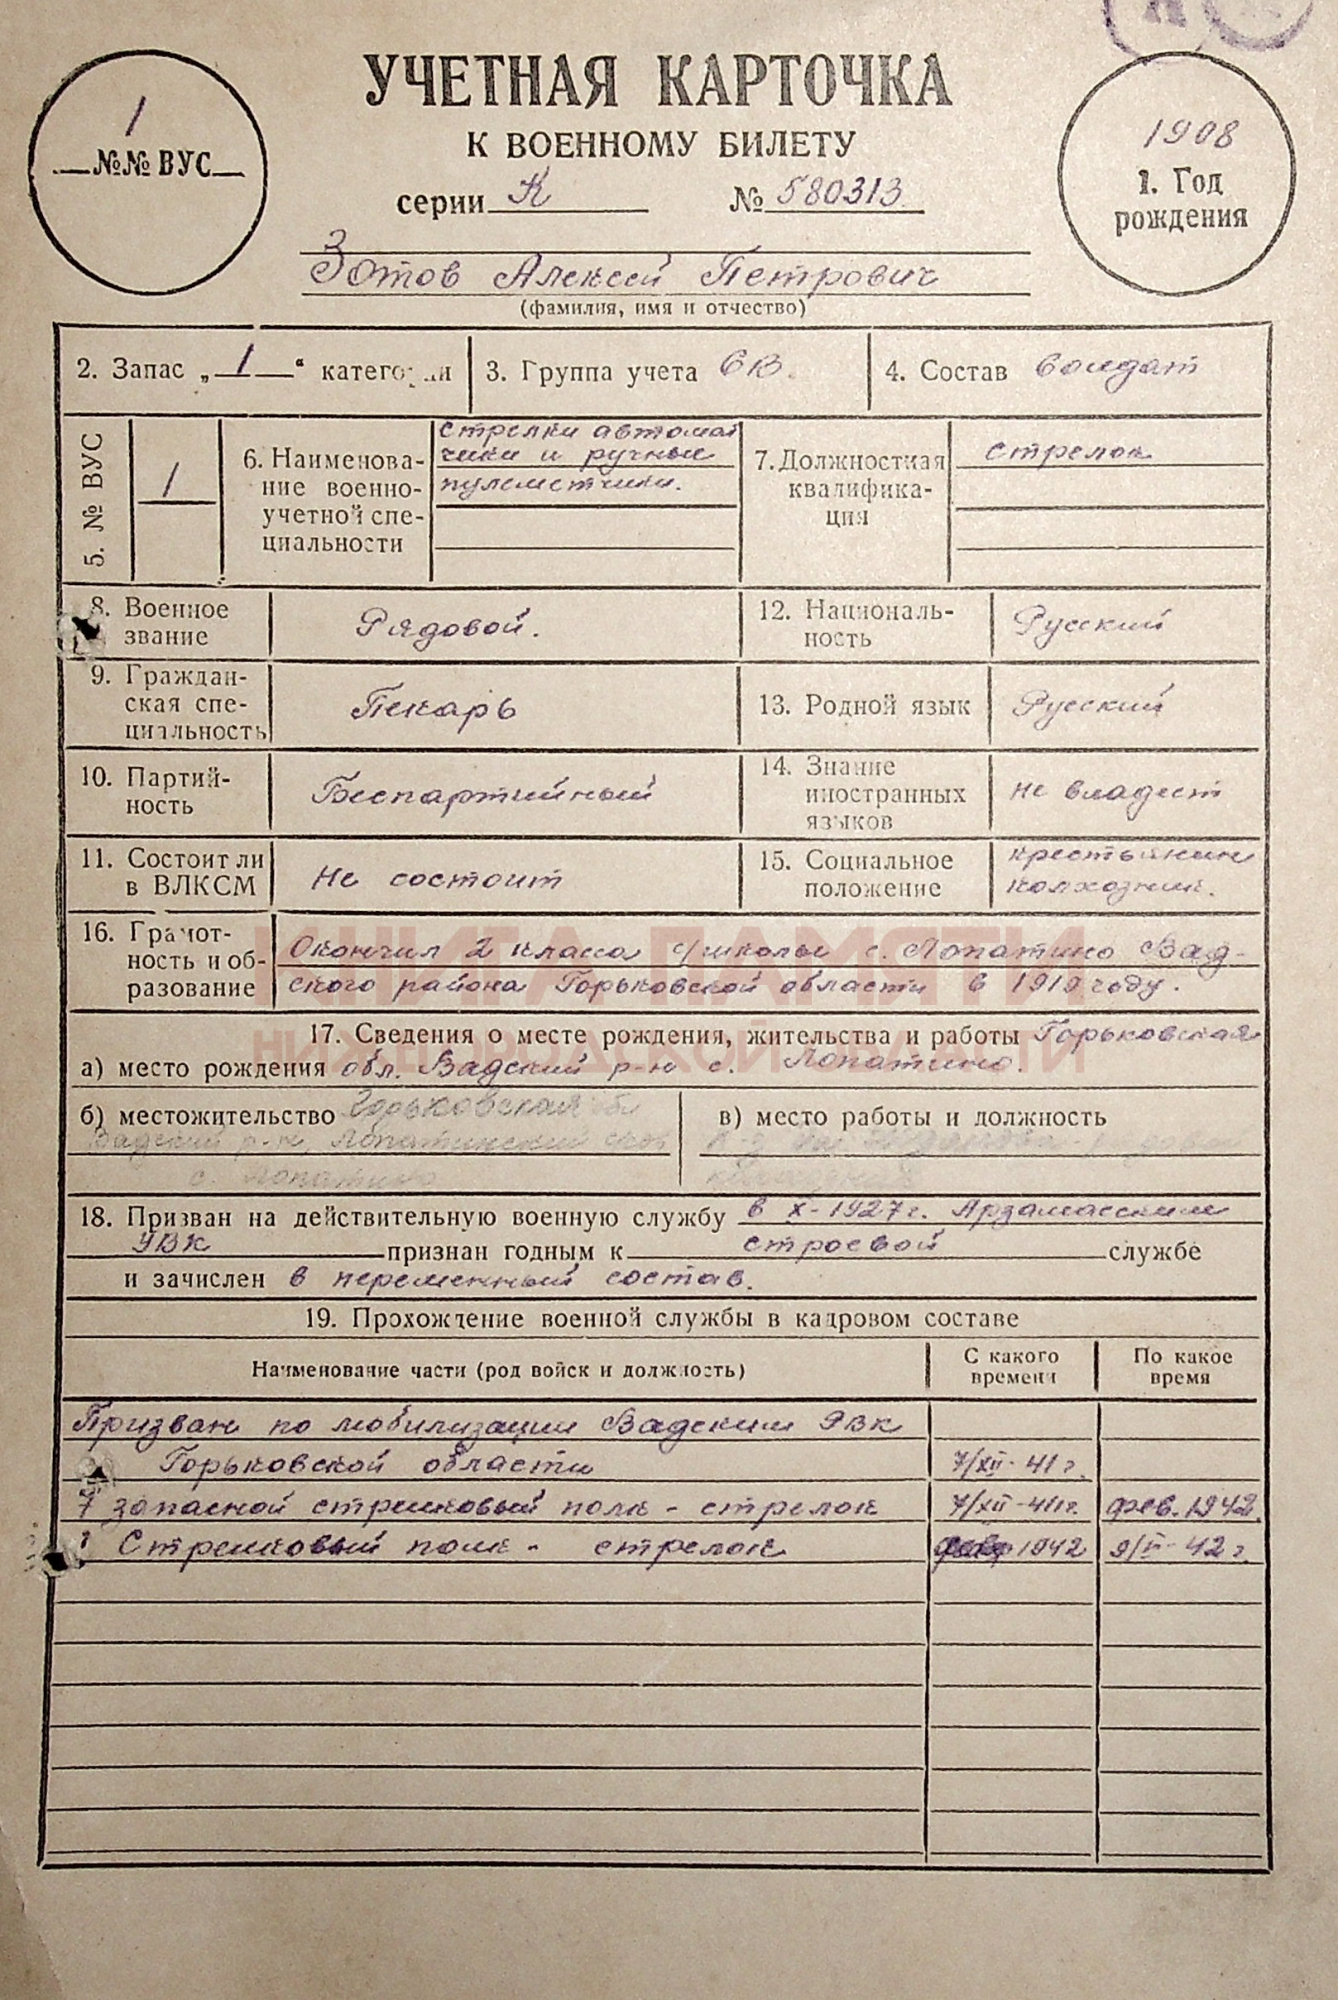 1
№№ ВУС
УЧЕТНАЯ КАРТОЧКА
К ВОЕННОМУ БИЛЕТУ
серии К № 580313
1908
1. Год
рождения
Зотов Алексей Петрович
(фамилия, имя и отчество)
2. Запас „1“ категории
3. Группа учета СВ.
4. Состав солдат
5. № ВУС
1
6. Наименова-
ние военно-
учетной спе-
циальности
стрелки автомат
чики и ручные
пулеметчики.
7. Должностная
квалифика-
ция
стрелок
8. Военное
звание
Рядовой.
12. Националь-
ность
Русский
9. Граждан-
ская спе-
циальность
Пекарь
13. Родной язык
Русский
10. Партий-
ность
Беспартийный
14. Знание
иностранных
языков
не владеет
11. Состоит ли
в ВЛКСМ
Не состоит
15. Социальное
положение
крестьянин
колхозник.
16. Грамот-
ность и об-
разование
Окончил 2 класса с/школы с. Лопатино Вад-
ского района Горьковской области в 1919 году.
КНИГА ПАМЯТИ
НИЖЕГОРОДСКОЙ ОБЛАСТИ
17. Сведения о месте рождения, жительства и работы Горьковская
а) место рождения обл. Вадский р-н с. Лопатино.
б) местожительство Горьковская обл
Вадский р-н, Лопатинский сов
с. Лопатино
в) место работы и должность
к-з им.
18. Призван на действительную военную службу в X-1927 г. Арзамасским
УВК признан годным к строевой службе
и зачислен в переменный состав.
19. Прохождение военной службы в кадровом составе
Наименование части (род войск и должность)
С какого
времени
По какое
время
Призван по мобилизации Вадским РВК
Горьковской области 7/XII-41 г.
7 запасной стрелковый полк - стрелок 7/XII-41 г. фев. 1942.
Стрелковый полк - стрелок 1942 9/V-42 г.